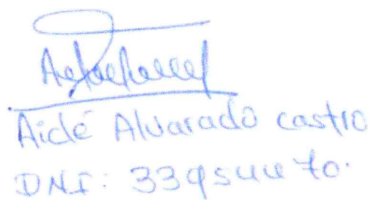 Aidé Alvarado castro
DNI: 33954470.